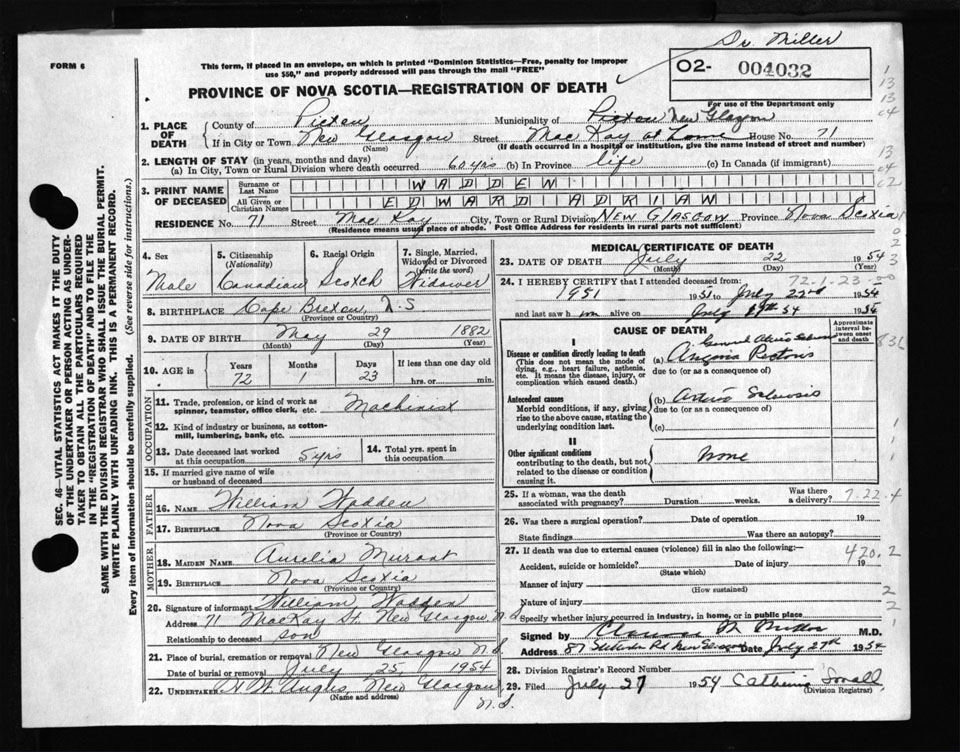 Dr. Miller
FORM 6
This form, if placed in an envelope, on which is printed "Dominion Statistics—Free, penalty for improper
use $50," and properly addressed will pass through the mail "FREE"
O2- 004032
For use of the Department only
PROVINCE OF NOVA SCOTIA—REGISTRATION OF DEATH
1. PLACE OF DEATH
County of Pictou Municipality of Pictou New Glasgow
If in City or Town New Glasgow Street MacKay at Home House No. 71
(Name) (If death occurred in a hospital or institution, give the name instead of street and number)
2. LENGTH OF STAY (in years, months and days)
(a) In City, Town or Rural Division where death occurred 60 yrs (b) In Province life (c) In Canada (if immigrant)
3. PRINT NAME OF DECEASED
Surname or Last Name WADDEN
All Given or Christian Names EDWARD ADRIAN
RESIDENCE No. 71 Street MacKay City, Town or Rural Division NEW GLASGOW Province Nova Scotia
(Residence means usual place of abode. Post Office Address for residents in rural parts not sufficient)
SEC. 46—VITAL STATISTICS ACT MAKES IT THE DUTY
OF THE UNDERTAKER OR PERSON ACTING AS UNDER-
TAKER TO OBTAIN ALL THE PARTICULARS REQUIRED
IN THE "REGISTRATION OF DEATH" AND TO FILE THE
SAME WITH THE DIVISION REGISTRAR WHO SHALL ISSUE THE BURIAL PERMIT.
WRITE PLAINLY WITH UNFADING INK. THIS IS A PERMANENT RECORD.
Every item of information should be carefully supplied. (See reverse side for instructions.)
4. Sex Male
5. Citizenship (Nationality) Canadian
6. Racial Origin Scotch
7. Single, Married, Widowed or Divorced (write the word) Widower
8. BIRTHPLACE Cape Breton, N.S
(Province or Country)
9. DATE OF BIRTH May 29 1882
(Month) (Day) (Year)
10. AGE in Years 72 Months 1 Days 23 If less than one day hrs. or min.
OCCUPATION
11. Trade, profession, or kind of work as spinner, teamster, office clerk, etc. Machinist
12. Kind of industry or business, as cotton-mill, lumbering, bank, etc.
13. Date deceased last worked at this occupation 5 yrs
14. Total yrs. spent in this occupation
15. If married give name of wife or husband of deceased
FATHER
16. NAME William Wadden
17. BIRTHPLACE Nova Scotia
(Province or Country)
MOTHER
18. MAIDEN NAME Aurelia Murant
19. BIRTHPLACE Nova Scotia
(Province or Country)
20. Signature of informant William Wadden
Address 71 MacKay St. New Glasgow N.S
Relationship to deceased son
21. Place of burial, cremation or removal New Glasgow N.S
Date of burial or removal July 25 1954
22. UNDERTAKER New Glasgow N.S.
(Name and address)
MEDICAL CERTIFICATE OF DEATH
23. DATE OF DEATH July 22 1954
(Month) (Day) (Year)
24. I HEREBY CERTIFY that I attended deceased from: 72-1-23
1951 1951 to July 22nd 1954
and last saw him alive on July 54 1954
CAUSE OF DEATH
Approximate interval between onset and death
I
Disease or condition directly leading to death
(This does not mean the mode of dying, e.g., heart failure, asthenia, etc. It means the disease, injury, or complication which caused death.)
(a) Angina Pectoris
due to (or as a consequence of)
Antecedent causes
Morbid conditions, if any, giving rise to the above cause, stating the underlying condition last.
(b)
due to (or as a consequence of)
(c)
II
Other significant conditions
contributing to the death, but not related to the disease or condition causing it.
None
25. If a woman, was the death associated with pregnancy? Duration weeks. Was there a delivery? 7.22.4
26. Was there a surgical operation? Date of operation 19
State findings Was there an autopsy?
27. If death was due to external causes (violence) fill in also the following:— 420.2
Accident, suicide or homicide? Date of injury 19
(State which)
Manner of injury
(How sustained)
Nature of injury
Specify whether injury occurred in industry, in home, or in public place
Signed by M.D.
Address New Glasgow Date July 27th 1954
28. Division Registrar's Record Number
29. Filed July 27 1954 Catherine Small
(Division Registrar)